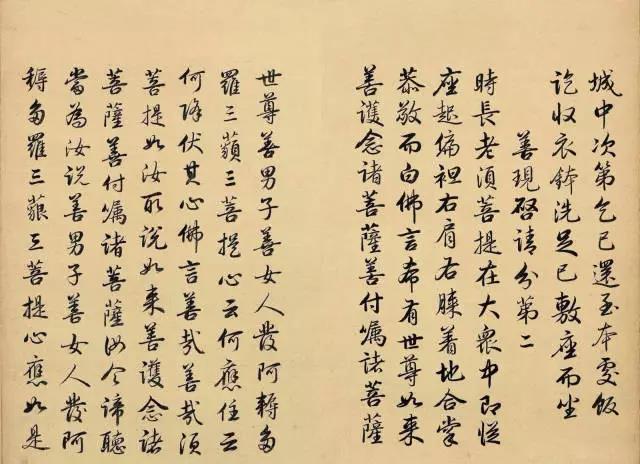 城中次第乞已還至本處飯
訖收衣鉢洗足已敷座而坐
善現啓請分第二
時長老須菩提在大衆中即從
座起偏袒右肩右膝著地合掌
恭敬而白佛言希有世尊如來
善護念諸菩薩善付囑諸菩薩
世尊善男子善女人發阿耨多
羅三藐三菩提心云何應住云
何降伏其心佛言善哉善哉須
菩提如汝所說如來善護念諸
菩薩善付囑諸菩薩汝今諦聽
當為汝說善男子善女人發阿
耨多羅三藐三菩提心應如是